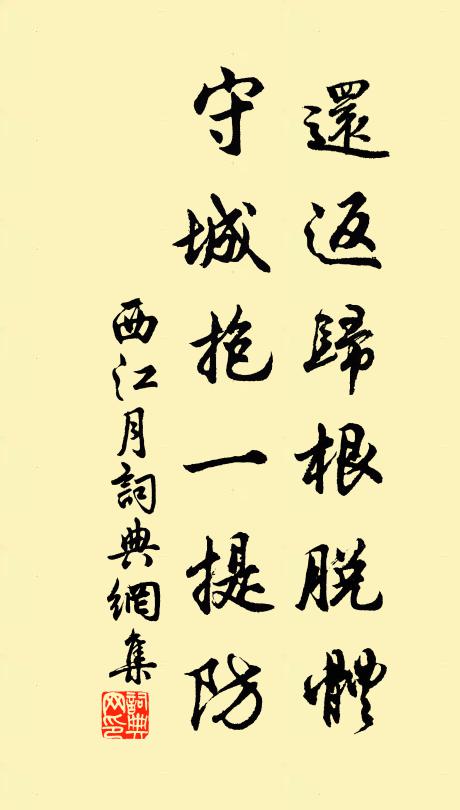 還返歸根脫體
守城抱一提防
西江月詞典網集
詞典網印